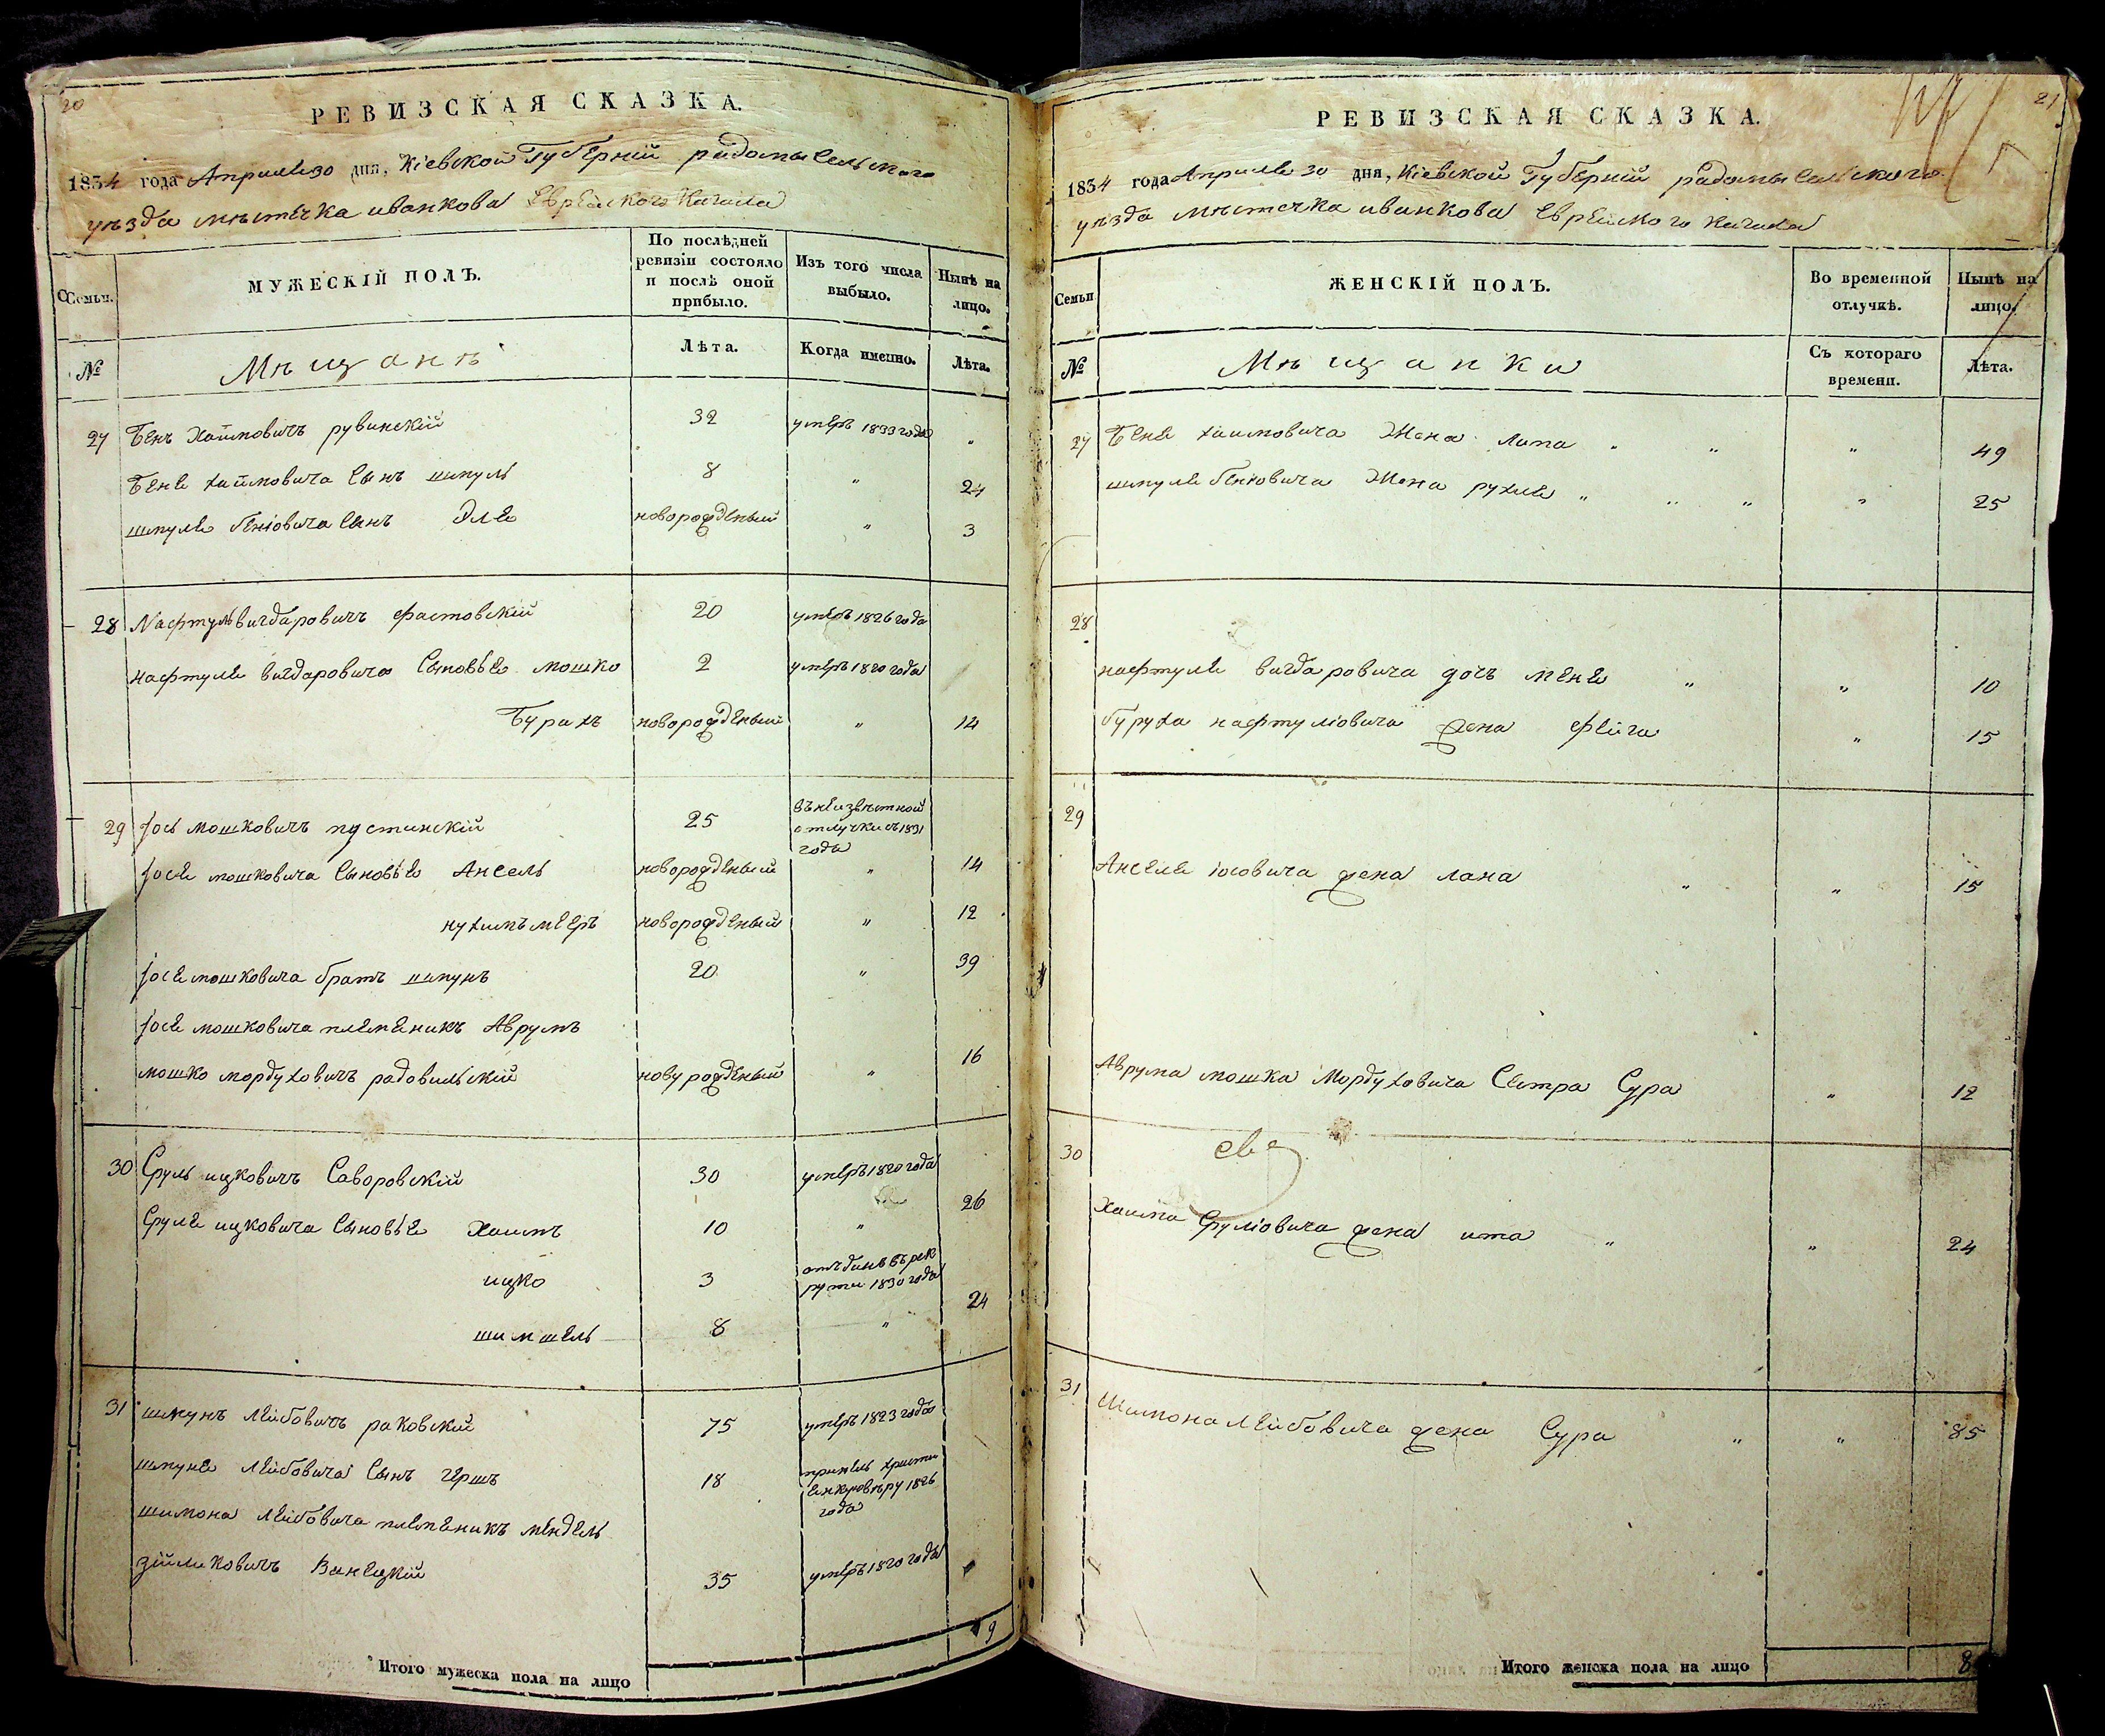 20
РЕВИЗСКАЯ СКАЗКА.
1834 года Апреля 30 дня, Кіевской Губерніи радомысльского
уѣзда мѣстечка иванкова Еврейского Кагала
Семьи.
МУЖЕСКІЙ ПОЛЪ.
По послѣдней ревизіи состояло и послѣ оной прибыло.
Изъ того числа выбыло.
Нынѣ на лицо.
№
Мѣщанѣ
Лѣта.
Когда именно.
Лѣта.
27 Бень Хаймовичъ рувинскій 32 умеръ 1833 года "
Беня хаймовича сынъ шмуль 8 " 24
шмуля беніовича сынъ Эля новорожденый " 3
28 Нафтуль вигдаровичъ фастовскій 20 умеръ 1826 года
нафтуля вигдаровича сыновья мошко 2 умеръ 1820 года
Бурахъ новорожденый " 14
29 Іось мошковичъ пустинскій 25 въ неизвѣстной отлучки съ 1831 года
Іося мошковича сыновья Ансель новорожденый " 14
нухимъ мееръ новорожденый " 12
Іося мошковича братъ шмунъ 20 " 39
Іося мошковича племеникъ Аврумъ
мошко мордуховичъ радовильскій новурожденый " 16
30 Сруль ицковичъ Саворовскій 30 умеръ 1820 года
Сруля ицковича сыновья Хаимъ 10 " 26
ицко 3 отъданъ въ рекрути 1830 года
шимшель 8 " 24
31 шмунъ Лейбовичъ раковский 75 умеръ 1823 года
шмуня Лейбовича сынъ гершъ 18 принелъ христиенску вѣру 1826 года
шимона Лейбовича племеникъ мендель
зійликовичъ Винецкій 35 умеръ 1820 года
Итого мужеска пола на лицо 9
21
РЕВИЗСКАЯ СКАЗКА.
1834 года Апреля 30 дня, Кіевской Губерніи радомысльского
уѣзда мѣстечка иванкова Еврейского Кагала
Семьи
ЖЕНСКІЙ ПОЛЪ.
Во временной отлучкѣ.
Нынѣ на лицо.
№
Мѣщанки
Съ котораго времени.
Лѣта.
27 Беня хаимовича Жена липа " " " 49
шмуля беніовича Жена рухля " " " " 25
28
нафтуля вигдаровича дочъ меня " " 10
буруха нафтуліовича жена фейга " 15
29
Анселя іосовича жена лана " " 15
Аврума мошка Мордуховича Сестра Сура " 12
30
Хаима Сруліовича жена ита " " 24
31 Шимона Лейбовича жена Сура " " 85
Итого женска пола на лицо 8